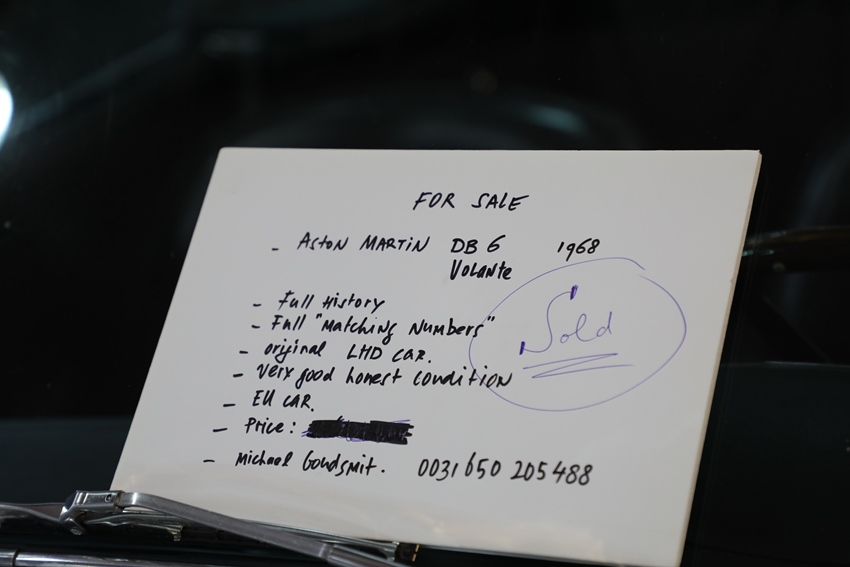 FOR SALE
- ASTON MARTIN DB 6 1968
Volante
- Full History
- Full "Matching Numbers"
Sold
- original LHD car.
- Very good honest condition
- EU CAR.
- Price:
- Michael Goudsmit. 0031 650 205488